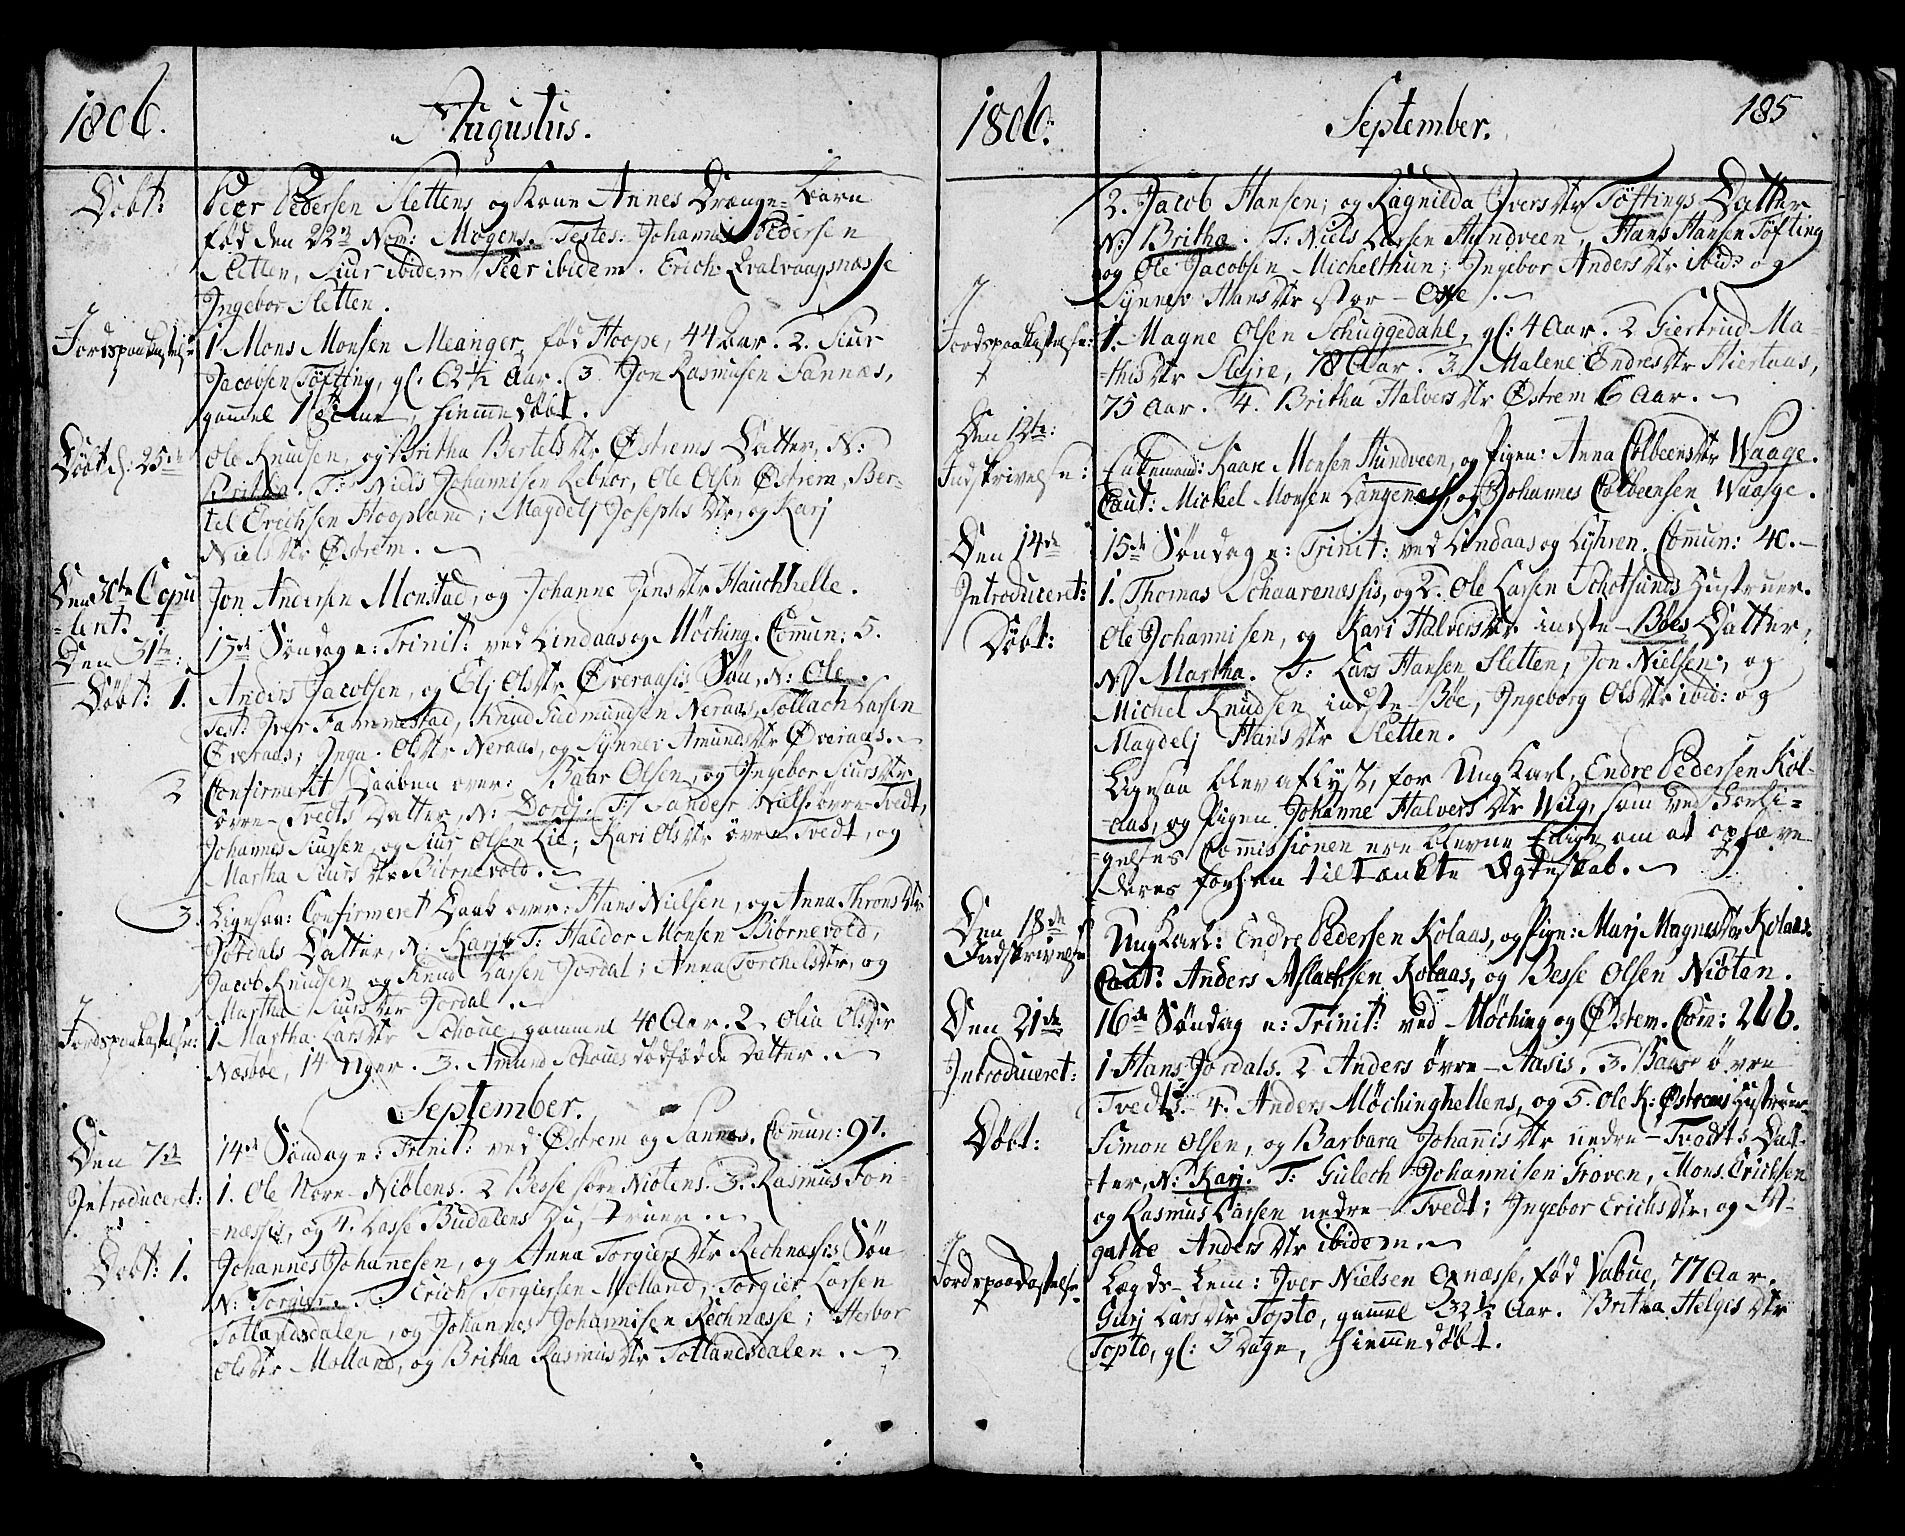 1806.
Augustus.
Döbt:
Peer Pedersen Slettens og Kone Annes Drænge-Barn
fød den 22de Nom: Mogens. Testes: Johannes Pedersen
Sletten, Siur ibidem Peer ibidem. Erich Qvalvaagsnæsse
Ingebor Sletten.
Jordspaakastelse
1. Mons Monsen Meanger, fød Hoope, 44 Aar. 2. Siur
Jacobsen Töfting, gl. 62 1/2 Aar. 3. Jon Rasmusen Sannæs,
gammel 1 Aar, hiemmedöbt.
Döbt d: 25de
Ole Knudsen, og Britha Bertels dtr Östrems Datter, N:
Britha. T: Niels Johannisen Rebnor, Ole Olsen Östrem, Ber-
til Erichsen Hoopland; Magdelj Josephs dtr, og Karj
Niels dtr Östrem.
Den 30te Copu
-lent.
Jon Andersen Monstad, og Johanne Jens dtr Hauchhelle.
Den 31te:
13de Söndag e: Trinit: ved Lindaas og Möching. Comun: 5.
Döbt: 1.
Anders Jacobsen, og Elj Ols dtr Överaasis Sön, N: Ole.
Test: Iver Fammestad, Knud Gudmundsen Neraas, Tollach Larsen
Överaas; Inga Ols dtr Neraas, og Synnev Amunds dtr Överaas.
2
Confirmert Daaben over: Baar Olsen, og Ingebor Siurs dtr
övre-Tvedts Datter, N: Dordj. T: Sander Niels: övre Tvedt,
Johannes Siursen, og Siur Olsen Lie; Kari Ols dtr övre Tvedt, og
Martha Siurs dtr Biörnevold.
3.
Ligesaa: Confirmert Daab over: Hans Nielsen, og Anna Throns dtr
Jordals Datter, N: Karj. T: Haldor Monsen Biörnevold,
Jacob Knudsen og Knud Larsen Jordal; Anna Torchels dtr, og
Martha Siurs dtr Jordal.
Jordspaakastelse:
1 Martha Lars dtr Schoue, gammel 40 Aar. 2. Olia Ols dtr
Næsböe, 14 Uger. 3. Amund Schoues dödfödde Datter.
September.
Den 7de
14de Söndag e: Trinit: ved Östrem og Sannæs. Comun: 97.
Introduceret:
1. Ole Nore-Niötens. 2 Besse Niötens. 3. Rasmus Fon-
-næssis, og 4. Lasse Budalens Hustruer.
Döbt: 1.
Johannes Johannesen, og Anna Torgiers dtr Rechnæssis Sön
N: Torgier. T: Erich Torgiersen Molland, Torgier Larsen
Tollandsdalen, og Johannes Johannisen Rechnæsse; Herbor
Ols dtr Molland, og Britha Rasmus dtr Tollandsdalen.
1806.
September.
185
2. Jacob Hansen; og Ragnilda Ivers dtr Töftings Datter
N: Britha. T: Niels Larsen Hundveen, Hans Hansen Töfting
og Ole Jacobsen Michelthun; Ingebor Anders dtr ibid: og
Synnev Hans dtr stor-Osse.
Jordspaakastelse:
1. Magne Olsen Schuggedahl, gl: 4 Aar. 2 Giertrud Ma-
-this dtr Sleire, 78 Aar. 3. Malene Endres dtr Hiertaas,
75 Aar. 4. Britha Halvers dtr Östrem 6 Aar.
Den 12te:
Indskrivelse:
Enkemand: Kaare Monsen Hundveen, og Pigen: Anna Colbeens dtr Waage.
Caut: Mickel Monsen Langenæs, og Johannes Colbeensen Waage.
Den 14de
15de Söndag e: Trinit: ved Lindaas og Lyhren. Comun: 40.
Introduceret:
1. Thomas Schaarenæssis, og 2. Ole Larsen Schotsunds Hustruer.
Döbt:
Ole Johannisen, og Kari Halvers dtr indste-Böes Datter,
N: Martha. T: Lars Hansen Sletten, Jon Nielsen, og
Michel Knudsen indste-Böe, Ingeborg Ols dtr ibid: og
Magdelj Hans dtr Sletten.
Ligesaa blev aflyst, for Ung Karl, Endre Pedersen Kol-
-aas, og Pigen Johanne Halvers dtr Wiig, som ved Forli-
-gelses Commissionen ere blevne Enige om at ophæve
deres forhen tiltænkte Ægteskab.
Den 18de
Indskrivelse
Ung Karl: Endre Pedersen Kolaas, og Pige: Marj Magnes dtr Kolaas.
Caut: Anders Aslachsen Kolaas, og Besse Olsen Niötan.
Den 21de
16de Söndag e: Trinit: ved Möching og Östrem. Com: 266.
Introduceret:
1 Hans Jordals. 2 Anders övre-Aasis. 3. Baar övre
Tvedts. 4. Anders Möchinghellens, og 5. Ole K: Östrems Hustruer.
Döbt:
Simon Olsen, og Barbara Johannis dtr nedre-Tvedts Dat-
-ter, N: Karj. T: Gulech Johannisen Groven, Mons Erichsen
og Rasmus Larsen nedre-Tvedt; Ingebor Erichs dtr, og A-
gathe Anders dtr ibidem.
Jordspaakastelse
Lægds-Lem: Iver Nielsen Osnæsse, fød Vabue, 77 Aar.
Gurj Lars dtr Topto, gammel 32 1/2 Aar. Britha Helges dtr
Topto, gl: 3 Dage, hiemmedöbt.